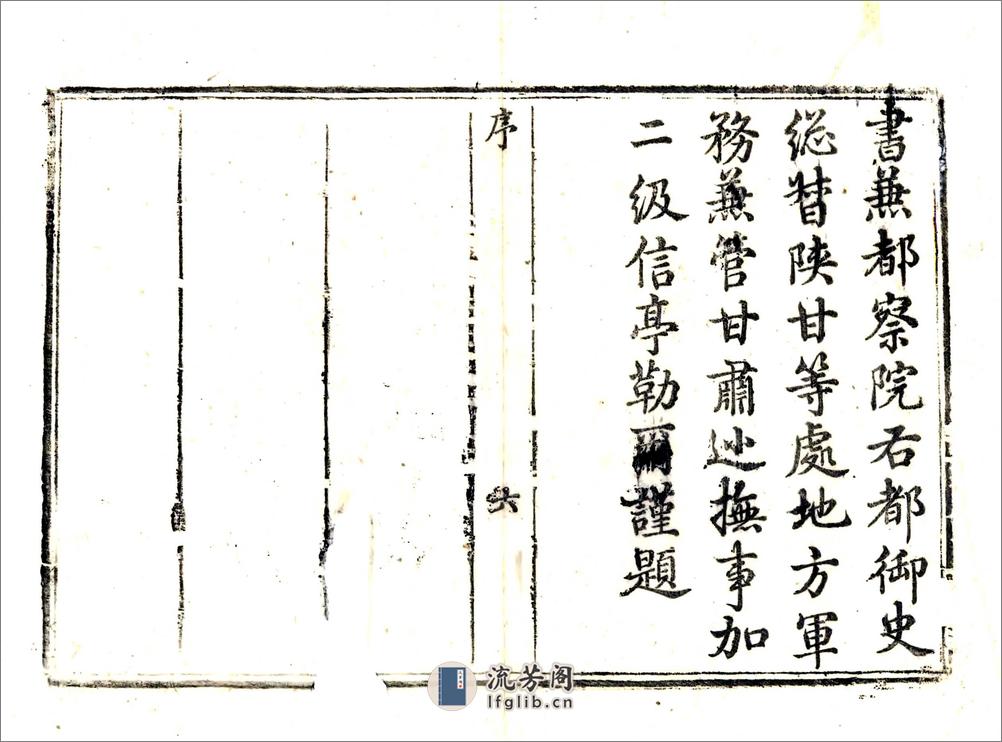 書兼都察院右都御史
總督陝甘等處地方軍
務兼管甘肅巡撫事加
二級信亭勒爾謹題
序
六
流芳阁
lfglib.cn